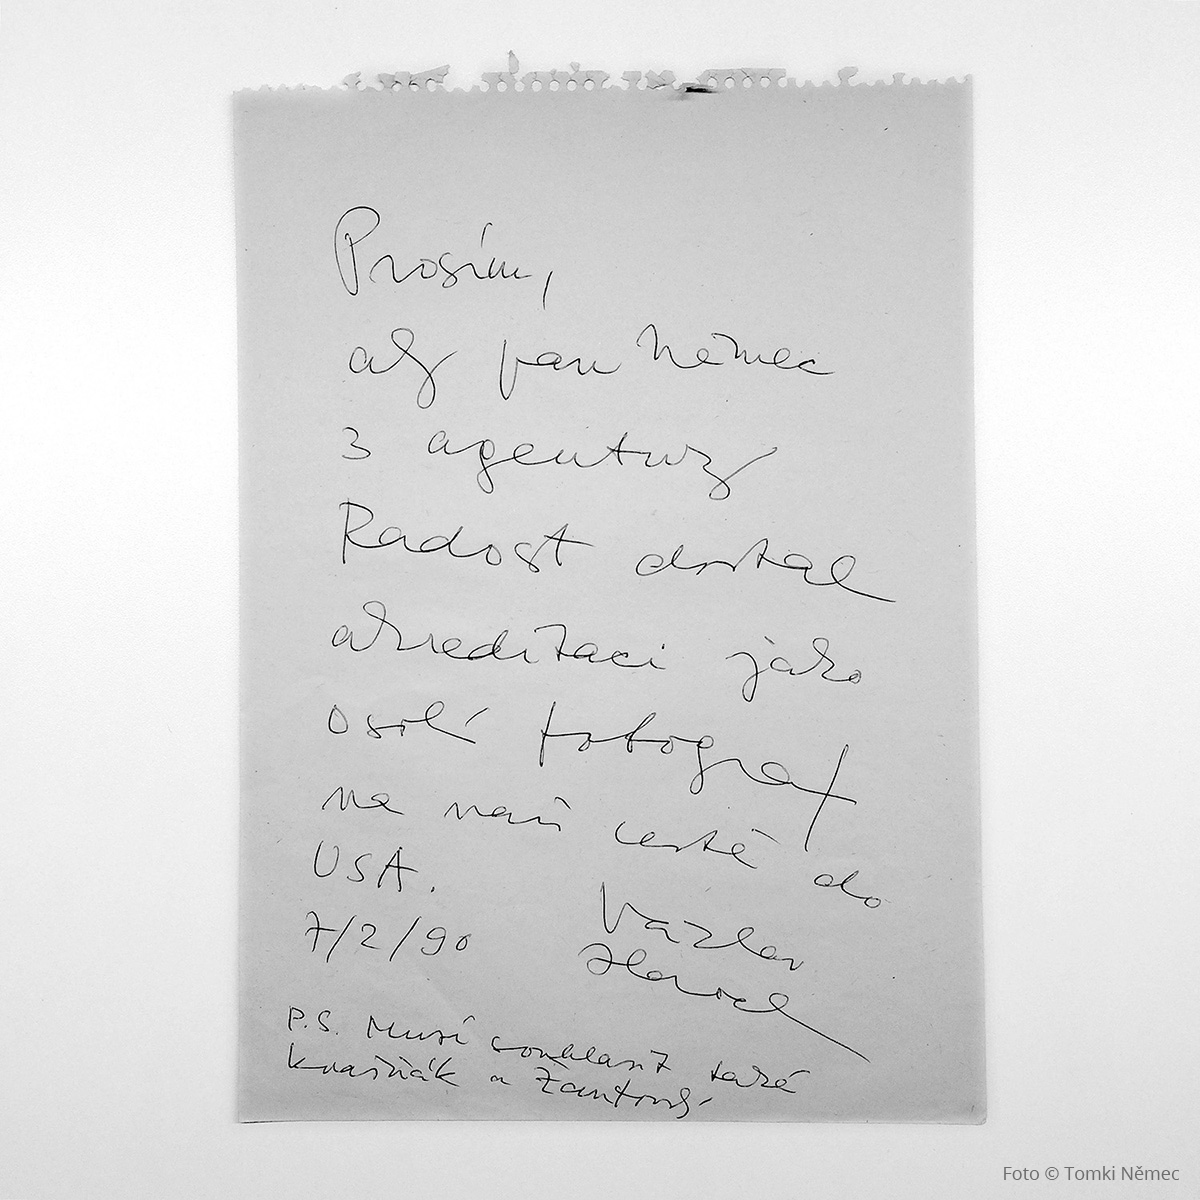 Prosím,
aby pan Němec
z agentury
Radost dostal
akreditaci jako
osobní fotograf
na naší cestě do
USA.
7/2/90
Václav
Havel
P.S. Musí souhlasit také
Kvašňák a Žantovský
Foto © Tomki Němec